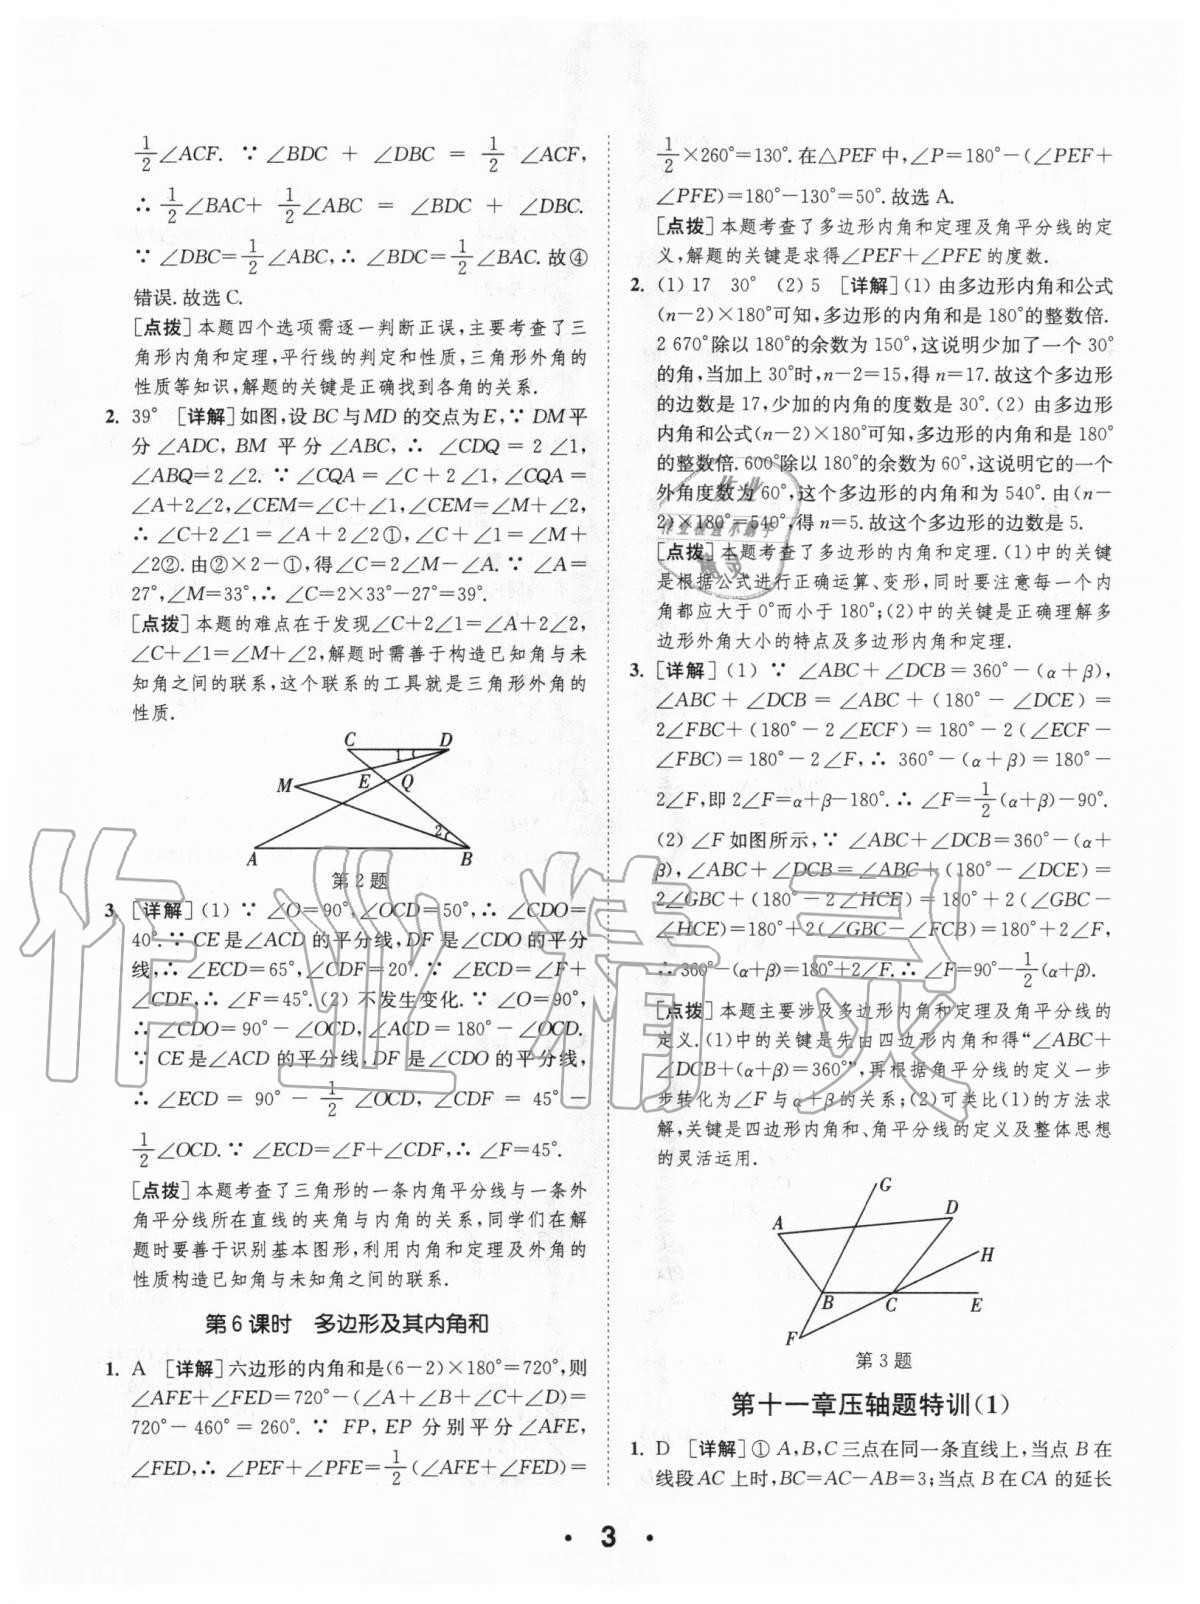 1/2∠ACF. ∵ ∠BDC + ∠DBC = 1/2 ∠ACF,
∴ 1/2∠BAC+ 1/2∠ABC = ∠BDC + ∠DBC.
∵ ∠DBC=1/2∠ABC,∴ ∠BDC=1/2∠BAC.故④
错误.故选C.
[点拨]本题四个选项需逐一判断正误,主要考查了三
角形内角和定理,平行线的判定和性质,三角形外角的
性质等知识,解题的关键是正确找到各角的关系.
2. 39° [详解]如图,设BC与MD的交点为E,∵ DM平
分∠ADC, BM 平分∠ABC,∴ ∠CDQ = 2∠1,
∠ABQ=2∠2. ∵ ∠CQA = ∠C + 2∠1,∠CQA =
∠A+2∠2,∠CEM=∠C+∠1,∠CEM=∠M+∠2,
∴ ∠C+2∠1=∠A+2∠2①,∠C+∠1=∠M+
∠2②.由②×2-①,得∠C=2∠M-∠A. ∵ ∠A=
27°,∠M=33°,∴ ∠C=2×33°-27°=39°.
[点拨]本题的难点在于发现∠C+2∠1=∠A+2∠2,
∠C+∠1=∠M+∠2,解题时需善于构造已知角与未
知角之间的联系,这个联系的工具就是三角形外角的
性质.
C D
1
M E Q
2
A B
第2题
3. [详解](1) ∵ ∠O=90°,∠OCD=50°,∴ ∠CDO=
40°.∵ CE是∠ACD的平分线,DF是∠CDO的平分
线,∴ ∠ECD=65°,∠CDF=20°. ∵ ∠ECD=∠F+
∠CDF,∴ ∠F=45°.(2) 不发生变化.∵ ∠O=90°,
∴ ∠CDO=90°-∠OCD,∠ACD=180°-∠OCD.
∵ CE是∠ACD的平分线,DF是∠CDO的平分线,
∴ ∠ECD = 90° - 1/2 ∠OCD, ∠CDF = 45° -
1/2∠OCD.∵ ∠ECD=∠F+∠CDF,∴ ∠F=45°.
[点拨]本题考查了三角形的一条内角平分线与一条外
角平分线所在直线的夹角与内角的关系,同学们在解
题时要善于识别基本图形,利用内角和定理及外角的
性质构造已知角与未知角之间的联系.
第6课时 多边形及其内角和
1. A [详解]六边形的内角和是(6-2)×180°=720°,则
∠AFE+∠FED=720°-(∠A+∠B+∠C+∠D)=
720°-460°=260°. ∵ FP, EP 分别平分∠AFE,
∠FED,∴ ∠PEF+∠PFE=1/2(∠AFE+∠FED)=
1/2×260°=130°.在△PEF中,∠P=180°-(∠PEF+
∠PFE)=180°-130°=50°.故选A.
[点拨]本题考查了多边形内角和定理及角平分线的定
义,解题的关键是求得∠PEF+∠PFE的度数.
2. (1) 17 30° (2) 5 [详解](1) 由多边形内角和公式
(n-2)×180°可知,多边形的内角和是180°的整数倍.
2 670°除以180°的余数为150°,这说明少加了一个30°
的角,当加上30°时,n-2=15,得n=17.故这个多边形
的边数是17,少加的内角的度数是30°.(2) 由多边形
内角和公式(n-2)×180°可知,多边形的内角和是180°
的整数倍.600°除以180°的余数为60°,这说明它的一个
外角度数为60°,这个多边形的内角和为540°.由(n-
2)×180°=540°,得n=5.故这个多边形的边数是5.
[点拨]本题考查了多边形的内角和定理.(1)中的关键
是根据公式进行正确运算、变形,同时要注意每一个内
角都应大于0°而小于180°;(2)中的关键是正确理解多
边形外角大小的特点及多边形内角和定理.
3. [详解](1) ∵ ∠ABC+∠DCB=360°-(α+β),
∠ABC + ∠DCB = ∠ABC + (180° - ∠DCE) =
2∠FBC+(180°-2∠ECF)=180°-2(∠ECF-
∠FBC)=180°-2∠F,∴ 360°-(α+β)=180°-
2∠F,即2∠F=α+β-180°.∴ ∠F=1/2(α+β)-90°.
(2) ∠F如图所示,∵ ∠ABC+∠DCB=360°-(α+
β),∠ABC+∠DCB=∠ABC+(180°-∠DCE)=
2∠GBC+(180°-2∠HCE)=180°+2(∠GBC-
∠HCE)=180°+2(∠GBC-∠FCB)=180°+2∠F,
∴ 360°-(α+β)=180°+2∠F.∴ ∠F=90°-1/2(α+β).
[点拨]本题主要涉及多边形内角和定理及角平分线的
定义.(1)中的关键是先由四边形内角和得“∠ABC+
∠DCB+(α+β)=360°”,再根据角平分线的定义一步
步转化为∠F与α+β的关系;(2)可类比(1)的方法求
解,关键是四边形内角和、角平分线的定义及整体思想
的灵活运用.
G
A D
H
B C E
F
第3题
第十一章压轴题特训(1)
1. D [详解]① A,B,C三点在同一条直线上,当点B在
线段AC上时,BC=AC-AB=3;当点B在CA的延长
· 3 ·
作业精灵